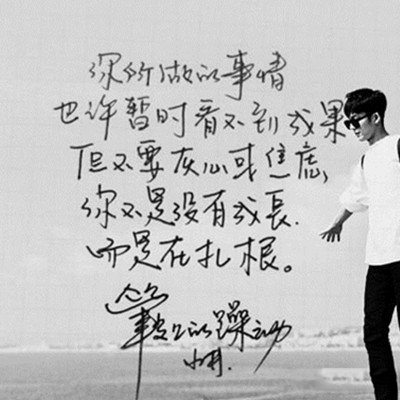 你所做的事情
也许暂时看不到成果
但不要灰心或焦虑
你不是没有成长.
而是在扎根。
的躁动